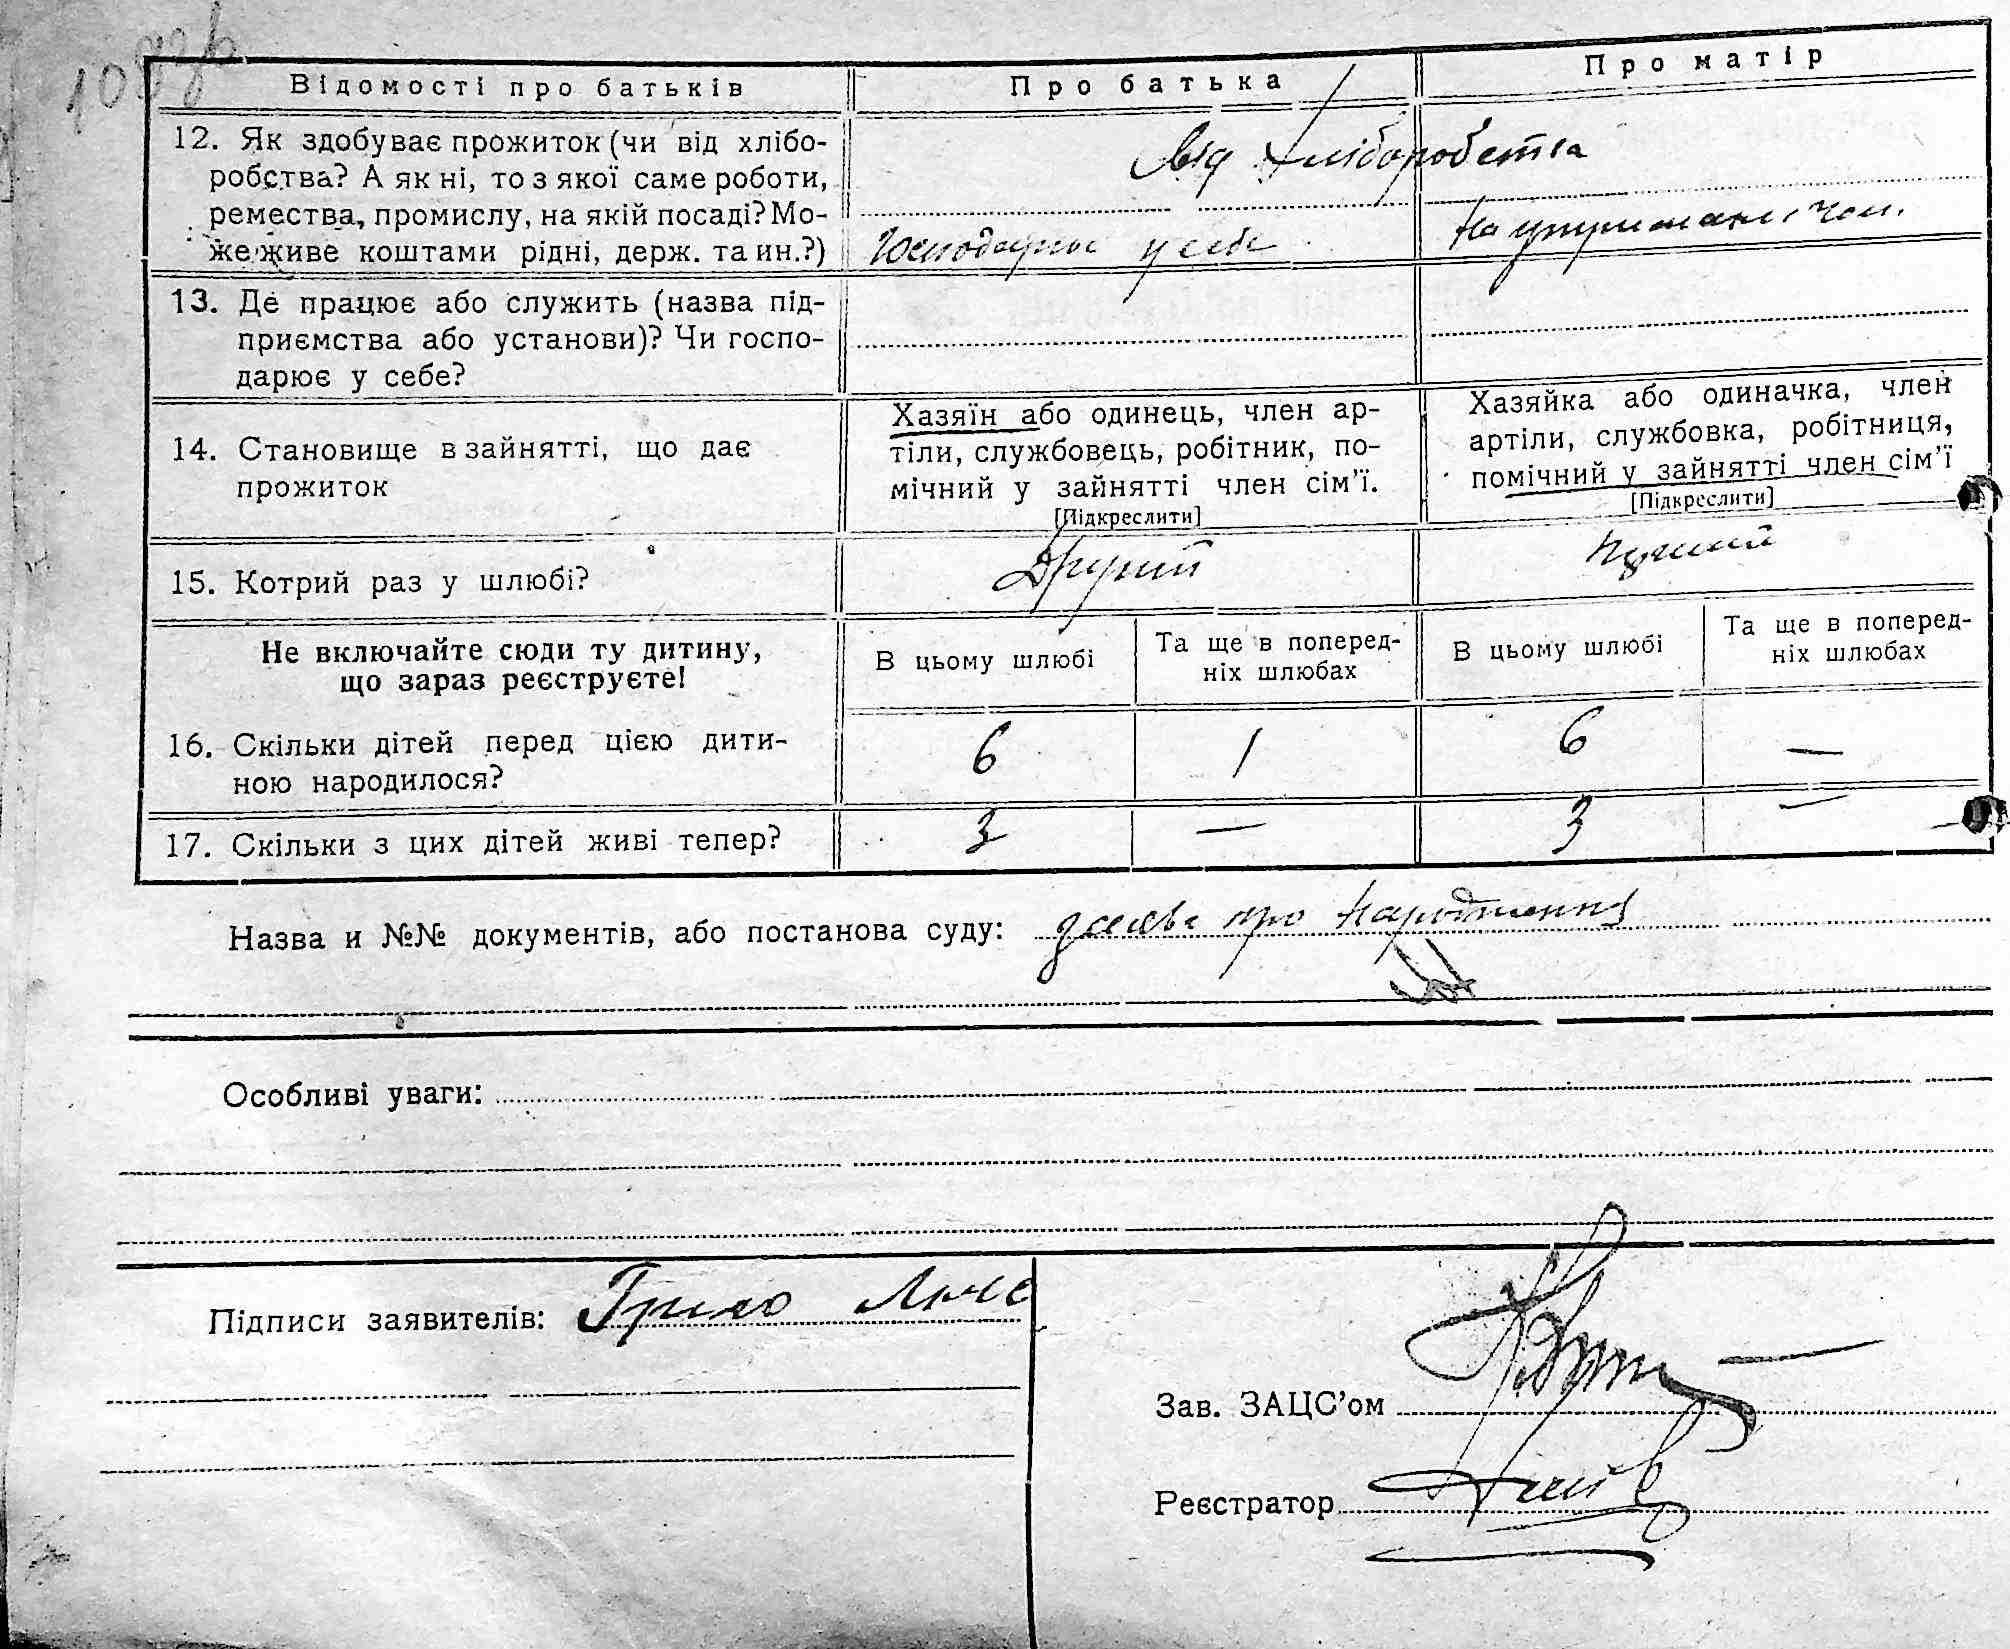 Відомості про батьків
Про батька
Про матір
12. Як здобуває прожиток (чи від хлібо-
робства? А як ні, то з якої саме роботи,
ремества, промислу, на якій посаді? Мо-
же живе коштами рідні, держ. та ин.?)
від хліборобства
Господарює у себе
На утриманні чол.
13. Де працює або служить (назва під-
приємства або установи)? Чи госпо-
дарює у себе?
14. Становище в зайнятті, що дає
прожиток
Хазяїн або одинець, член ар-
тіли, службовець, робітник, по-
мічний у зайнятті член сім'ї.
[Підкреслити]
Хазяйка або одиначка, член
артіли, службовка, робітниця,
помічний у зайнятті член сім'ї
[Підкреслити]
15. Котрий раз у шлюбі?
Другий
Не включайте сюди ту дитину,
що зараз реєструєте!
В цьому шлюбі
Та ще в поперед-
ніх шлюбах
В цьому шлюбі
Та ще в поперед-
ніх шлюбах
16. Скільки дітей перед цією дити-
ною народилося?
6
1
6
—
17. Скільки з цих дітей живі тепер?
3
—
3
—
Назва и №№ документів, або постанова суду: заява про народження
Особливі уваги:
Підписи заявителів:
Зав. ЗАЦС'ом
Реєстратор